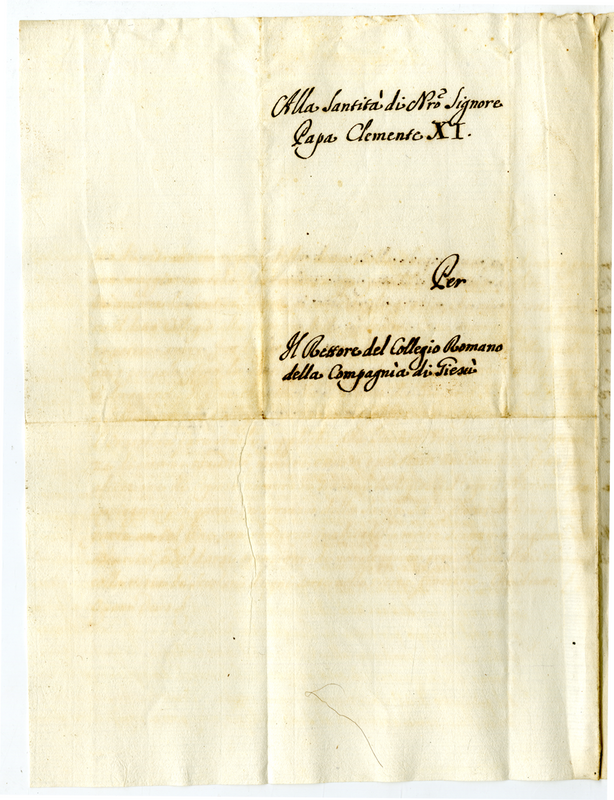 Alla Santità di Nrõ Signore
Papa Clemente XI.
Per
Il Rettore del Collegio Romano
della Compagnìa di Giesù